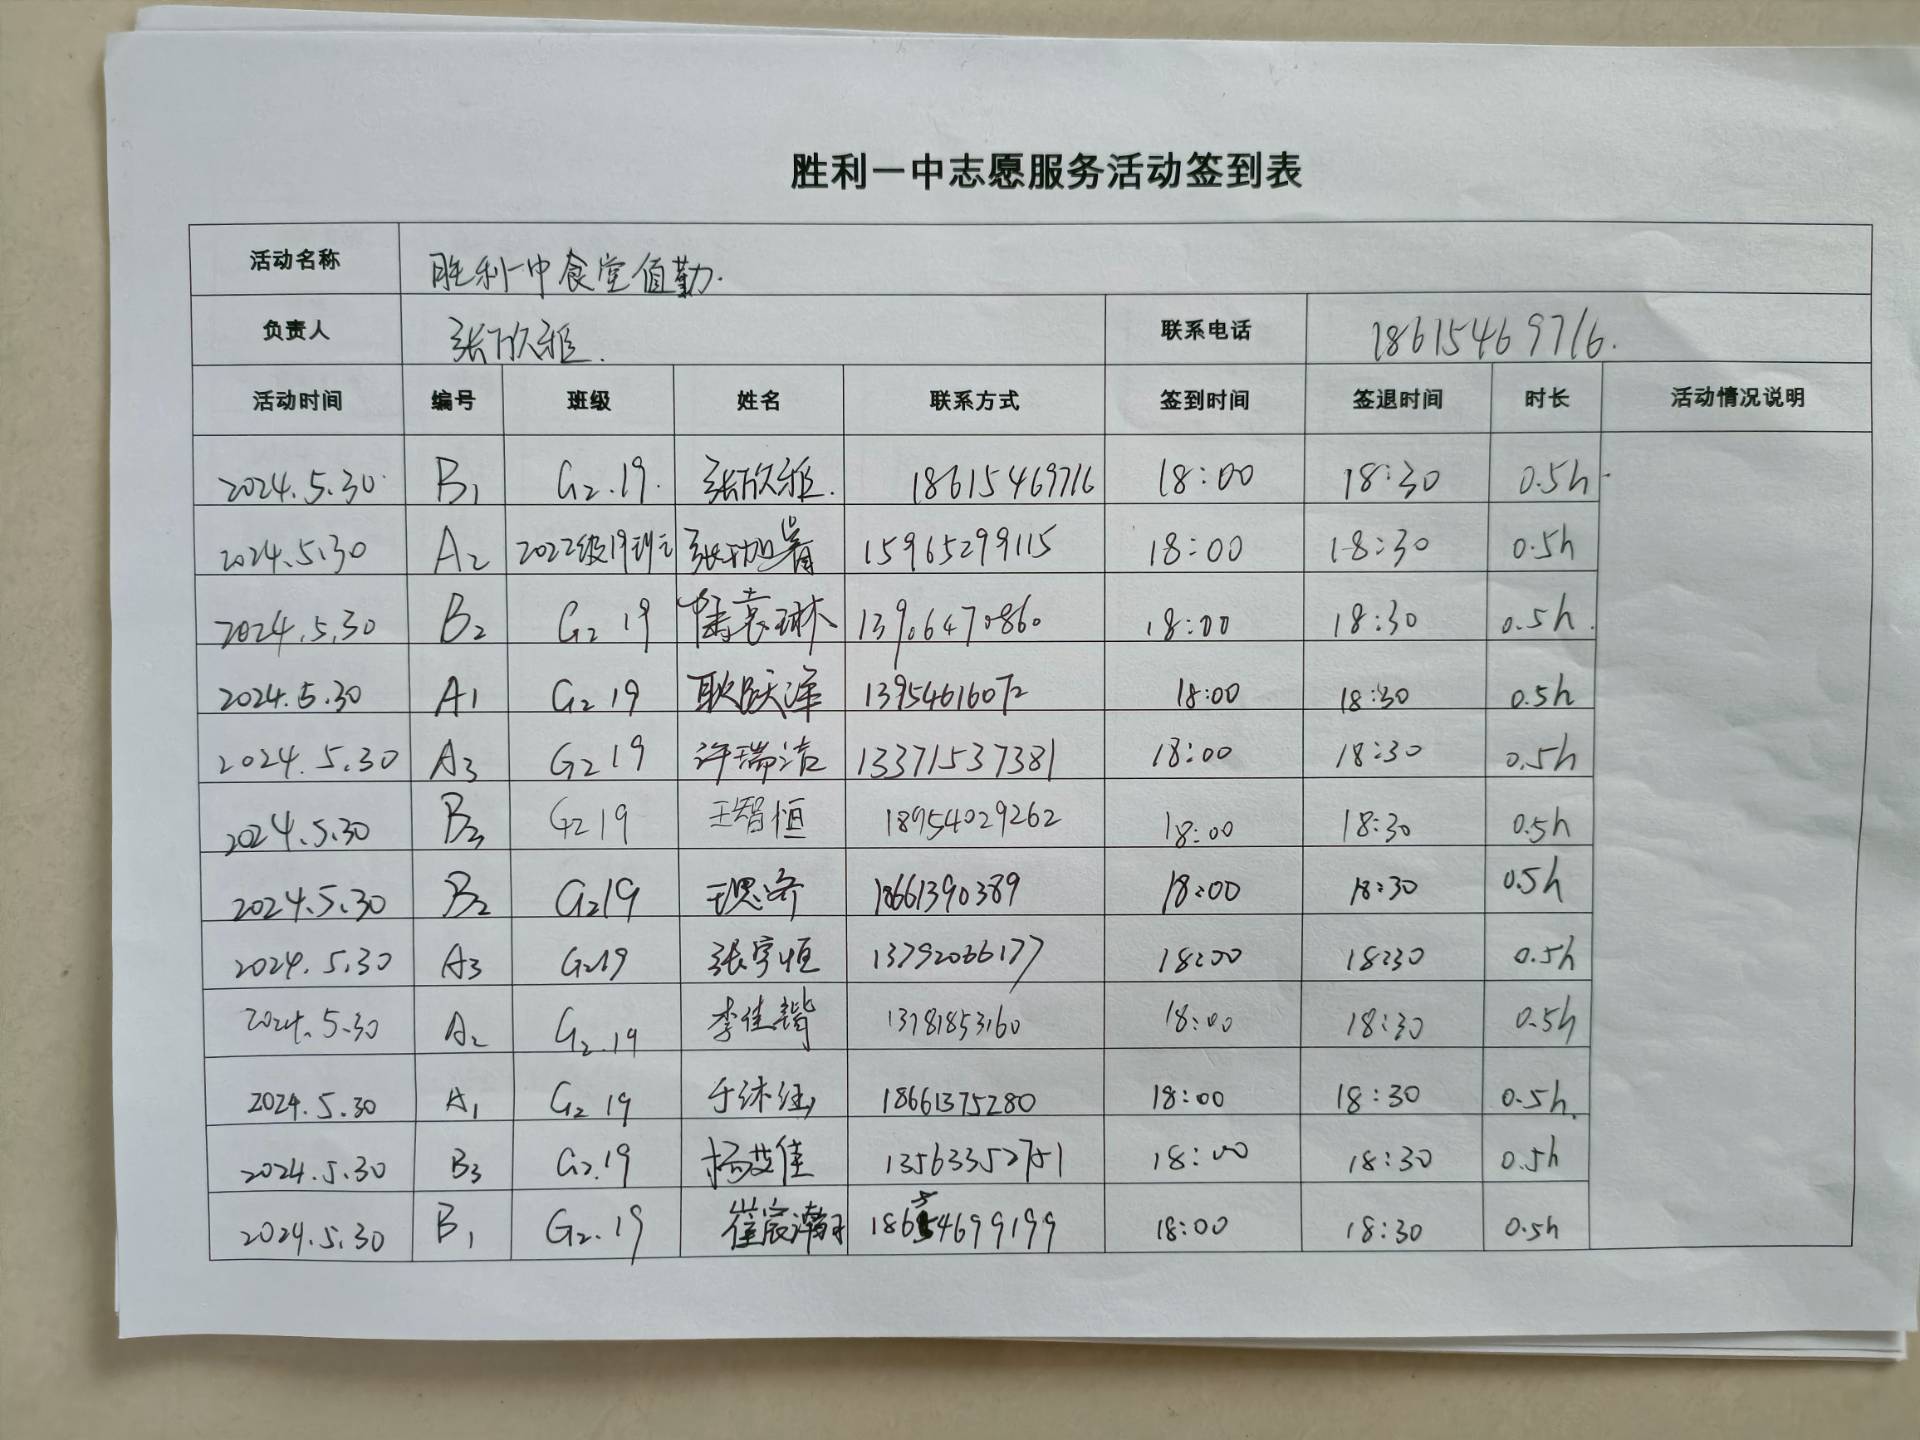 胜利一中志愿服务活动签到表
活动名称 胜利一中食堂值勤.
负责人 张欣雅. 联系电话 18615469716.
活动时间 编号 班级 姓名 联系方式 签到时间 签退时间 时长 活动情况说明
2024.5.30 B1 G2.19. 张欣雅. 18615469716 18:00 18:30 0.5h
2024.5.30 A2 2022级19班 15965299115 18:00 18:30 0.5h
2024.5.30 B2 G2 19 13906470860 18:00 18:30 0.5h.
2024.5.30 A1 G2 19 耿跃泽 13954616072 18:00 18:30 0.5h
2024.5.30 A3 G2 19 许瑞洁 13371537381 18:00 18:30 0.5h
2024.5.30 B3 G2 19 王智恒 18954029262 18:00 18:30 0.5h
2024.5.30 B2 G219 18661390389 18:00 18:30 0.5h
2024.5.30 A3 G219 张宇恒 13792066177 18:00 18:30 0.5h
2024.5.30 A2 G2.19 李佳锴 13781853160 18:00 18:30 0.5h
2024.5.30 A1 G2 19 18661375280 18:00 18:30 0.5h.
2024.5.30 B3 G2.19 杨艾佳 18:00 18:30 0.5h
2024.5.30 B1 G2.19 18654699199 18:00 18:30 0.5h